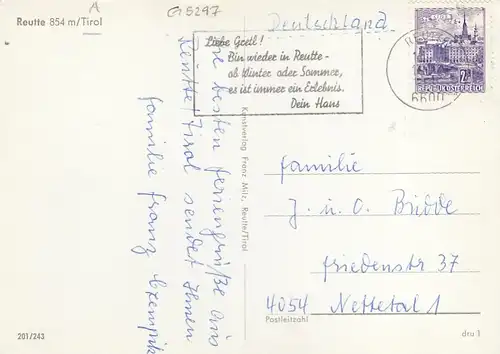 Reutte 854 m/Tirol
A
G15297
Deutschland
Liebe Gretl!
Bin wieder in Reutte -
ob Winter oder Sommer,
es ist immer ein Erlebnis.
Dein Hans
6600
2 S
REPUBLIK ÖSTERREICH
besten Feriengrüße aus
Reutte/Tirol sendet Ihnen
Familie Franz
Kunstverlag Franz Milz, Reutte/Tirol
Familie
J. u. O. Bridde
Friedenstr 37
4054 Nettetal 1
Postleitzahl
201/243
dru 1